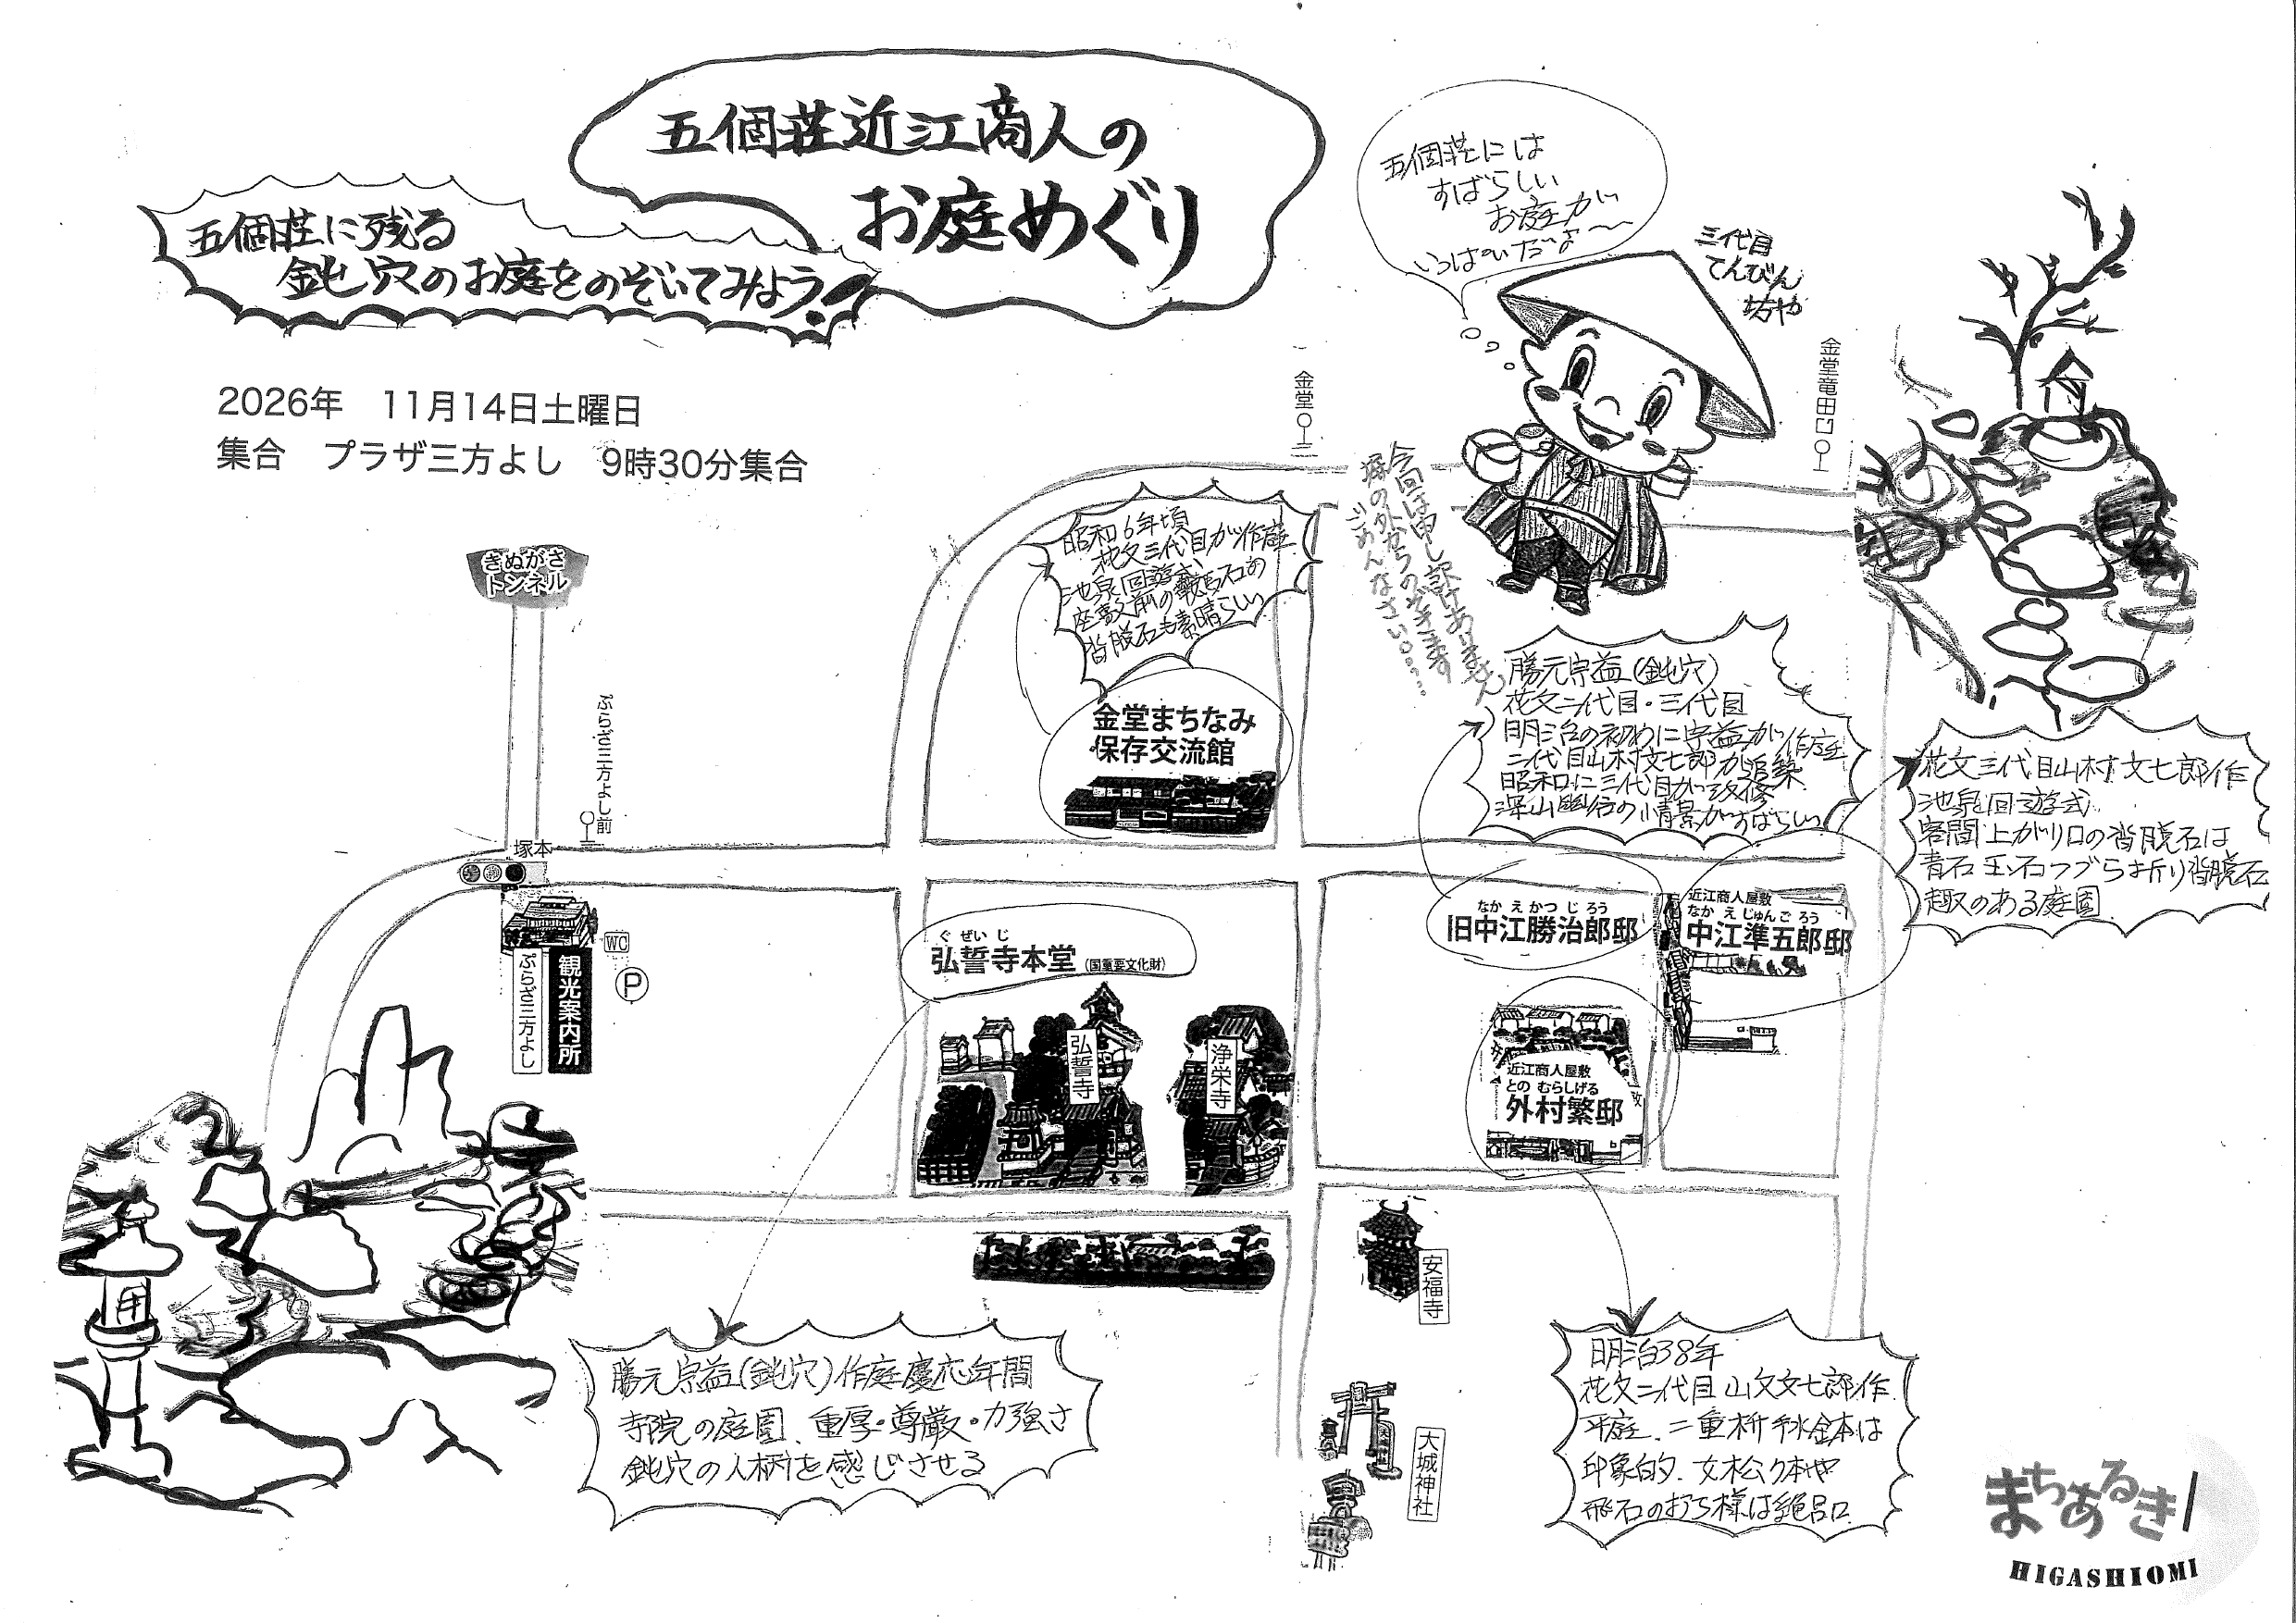 五個荘近江商人の
お庭めぐり
五個荘に残る
鈍穴のお庭をのぞいてみよう!
五個荘には
すばらしい
お庭が
いっぱいだよ〜
三代目
てんびん
坊や
2026年 11月14日土曜日
集合 プラザ三方よし 9時30分集合
金堂
金堂竜田口
今回は申し訳ありません
塀の外からのぞきます
ごめんなさい。……
きぬがさ
トンネル
ぷらざ三方よし前
塚本
WC
P
ぷらざ三方よし
観光案内所
昭和6年頃
花文三代目が作庭
池泉回遊式
座敷前の鞍馬石の
沓脱石も素晴らしい
金堂まちなみ
保存交流館
勝元宗益(鈍穴)
花文二代目・三代目
明治の初めに宗益が作庭
二代目山村文七郎が追築
昭和に三代目が改修
深山幽谷の情景がすばらしい
花文三代目山村文七郎作
池泉回遊式
客間上がり口の沓脱石は
青石 玉石つづら折り沓脱石
趣のある庭園
なかえかつじろう
旧中江勝治郎邸
近江商人屋敷
なかえじゅんごろう
中江準五郎邸
ぐぜいじ
弘誓寺本堂(国重要文化財)
弘誓寺
浄栄寺
近江商人屋敷
とのむらしげる
外村繁邸
安福寺
大城神社
勝元宗益(鈍穴)作庭慶応年間
寺院の庭園、重厚・尊厳・力強さ
鈍穴の人柄を感じさせる
明治38年
花文二代目山文文七郎作
平庭、二重桝手水鉢は
印象的、女松り本や
飛石のおち様は絶品
まちあるき
HIGASHIOMI